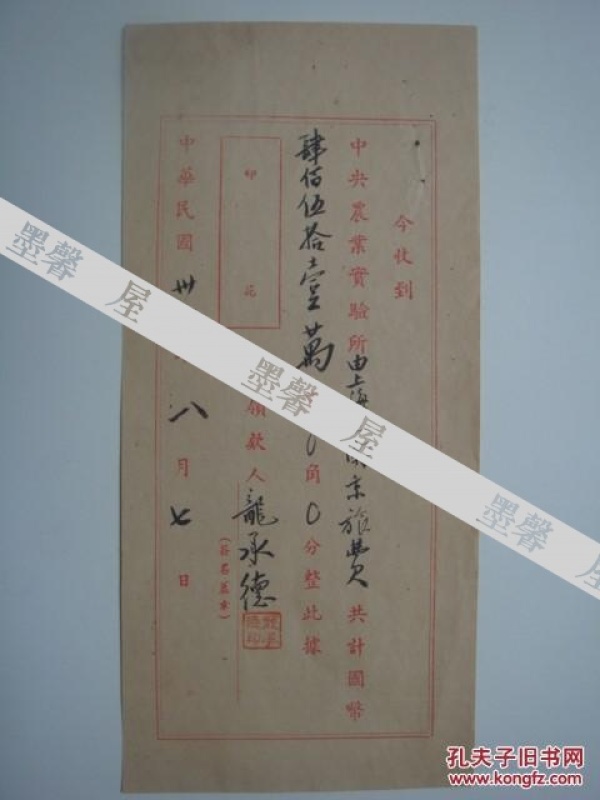 今收到
中央農業實驗所由上海京旅費共計國幣
肆佰伍拾壹萬0角0分整此據
印花
領款人龍承德
(簽名蓋章)
中華民國卅八月七日
墨馨屋
墨馨屋
墨馨屋
孔夫子旧书网
www.kongfz.com